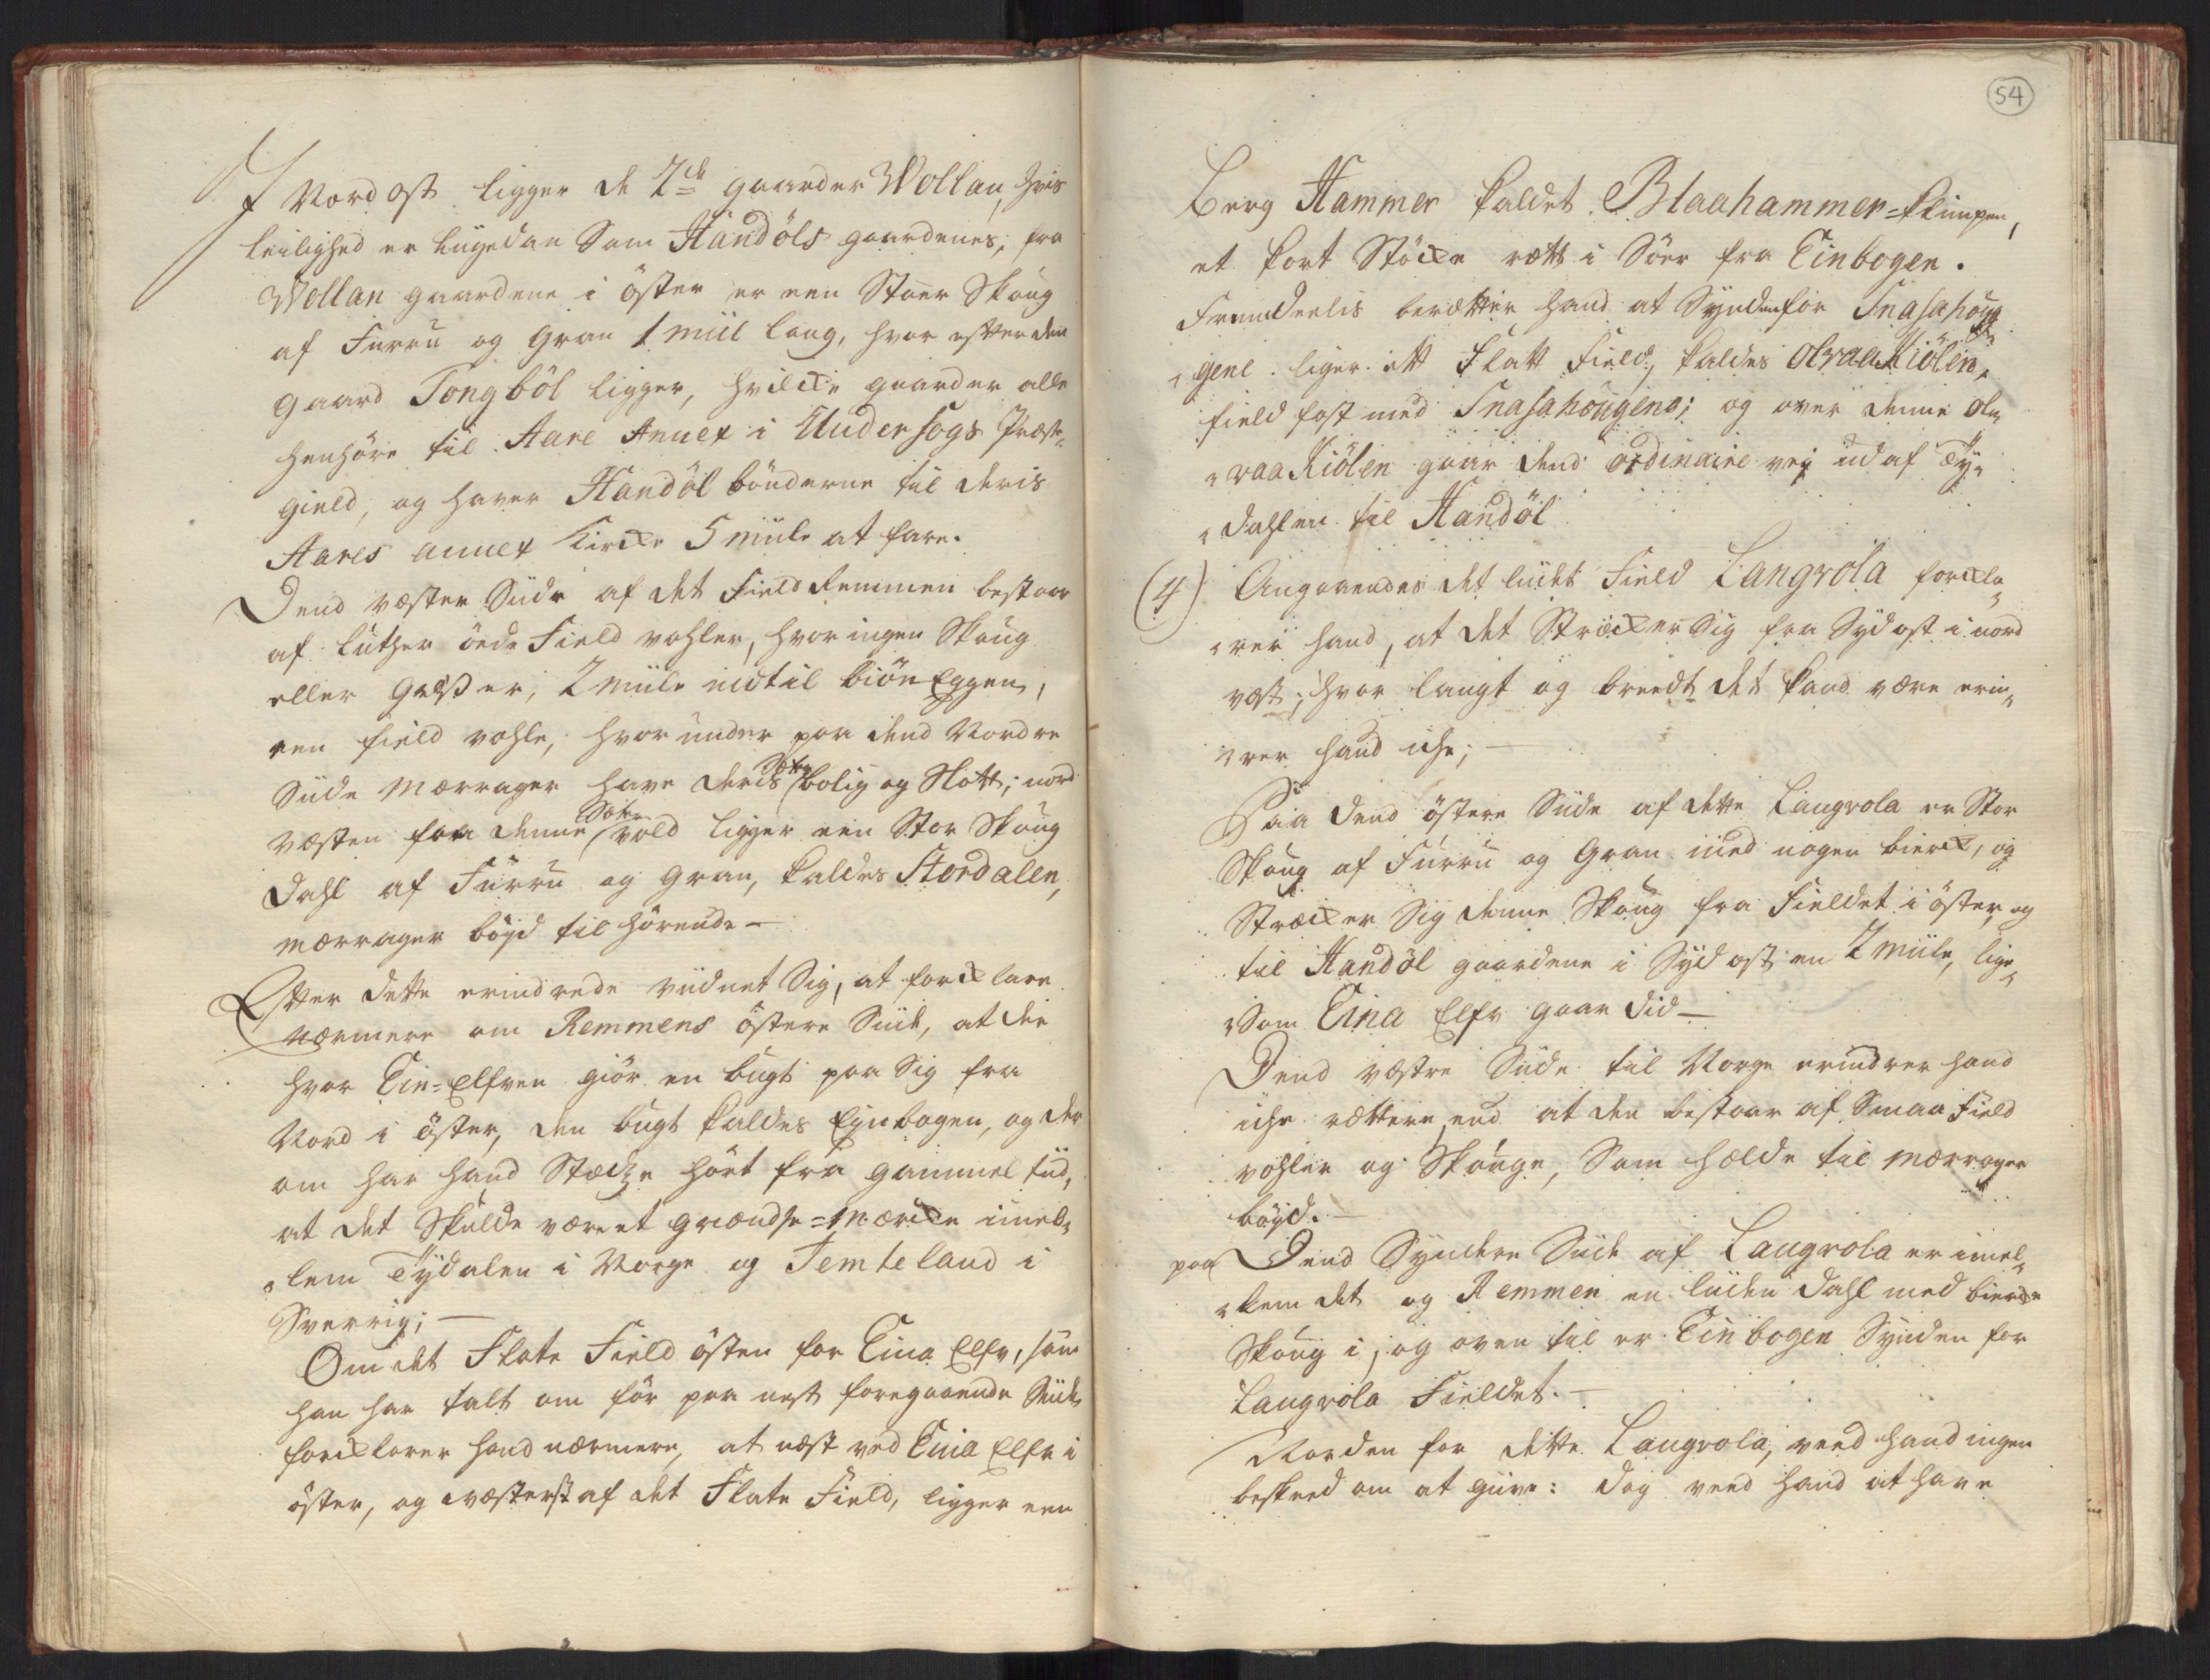 I Nord ost ligger de 2de gaarder Wollan, hvis
leilighed er liigedan Som Handöls gaardenes, fra
Wollan gaardene i öster er een Stoer Skoug
af Furru og Gran 1 miil lang, hvor efter den
gaard Tongböl ligger, hvilcke gaarder alle
henhöre til Aare Annex i Undersogs Præste„
gield, og haver Handöl bönderne til deris
Aares annex Kircke 5 miile at fare.
Dend væster Siide af det Field Remmen bestaar
af luther öede Field vohler, hvor ingen Skoug
eller Græs er, 2 miile ind til biön Eggen,
een field vohle, hvor under paa dend Nordre
Siide Mærrager have deris Sæter bolig og Slott; nord
væsten for denne Sæter vold ligger een Stor Skoug
Dahl af Fürru og Gran, kaldes Stordalen,
mærrager böyd til hörende –
Efter dette erindrede viidnet Sig, at forcklare
nærmere om Remmens östere Siide, at der
hvor Ein=Elfven giör en bugt paa Sig fra
Nord i öster, den bugt kaldes Eynbogen, og der
om har hand Stædtze hört fra gammel tiid,
at det Skulde være et grændse=Mærcke imel„
„lem Tydalen i Norge og Jemteland i
Sverrig; –
Om det Flate Field östen for Eina Elfv, som
han har talt om för paa nest foregaaende Siide
forcklarer hand nærmere, at næst ved Eina Elfv i
öster, og væsterst af det Flate Field, ligger een
54
Berg Hammer kaldet Blaahammer=klimpen,
et kort Stöcke rætt i Söer fra Einbogen.
Fremdeelis berætter hand at Synden for Snasahoug
„gene liger ett Flatt Field, kaldes OlraaKiölen,
field fast med Snasahougens; og over denne Ol„
„raa Kiölen gaar dend ordinaire vej ud af Ty„
„dahlen til Handöl
(4) Angaaendes det liidet Field Langvola forckla„
„rer hand, at det Sträcker Sig fra Syd ost i nord
vest; hvor langt og breedt det kand være erin„
„rer hand iche; –
Paa dend östere Siide af dette Langvola er Stor
Skoug af Fürru og Gran med nogen bierck, og
Sträcker Sig denne Skoug fra Fieldet i öster, og
til Handöl gaardene i Syd ost en 2 miile, lige„
„Som Eina Elfv gaar did –
Dend væstre Siide til Norge erindrer hand
iche rættere, end at den bestaar af Smaa Field
vohler og Skouge, Som hælde til Mærrager
böyd. –
paa Dend Syndere Siide af Langvola er imel„
„lem det og Remmen en liiden Dahl med biercke
Skoug i, og oven til er Einbogen Synden for
Langvola Fieldet. –
Norden for dette Langvola, veed hand ingen
beskeed om at giive: dog veed hand at have